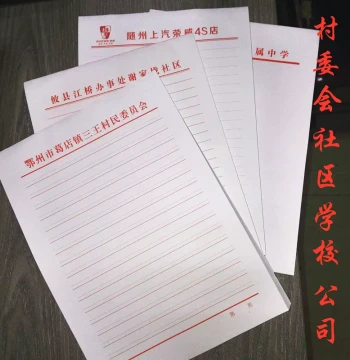 随州上汽荣威4S店
属中学
攸县江桥办事处谢家垅社区
鄂州市葛店镇三王村民委员会
村委会社区学校公司